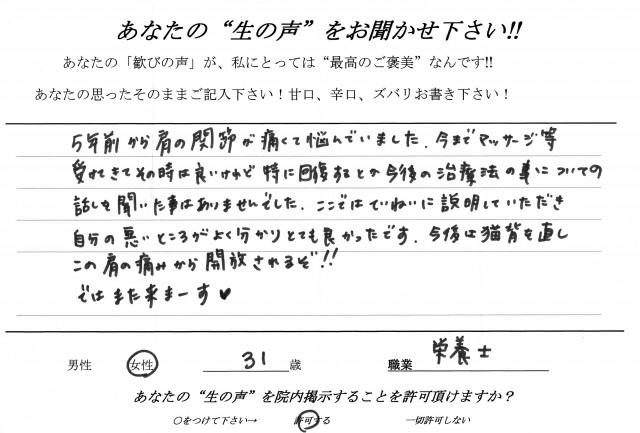 あなたの“生の声”をお聞かせ下さい!!
あなたの「歓びの声」が、私にとっては“最高のご褒美”なんです!!
あなたの思ったそのままご記入下さい！甘口、辛口、ズバリお書き下さい！
5年前から肩の関節が痛くて悩んでいました。今までマッサージ等
受けてきてその時は良いけれど特に回復するとか今後の治療法の事についての
話しを聞いた事はありませんでした。ここではていねいに説明していただき
自分の悪いところがよく分かりとても良かったです。今後は猫背を直し
この肩の痛みから開放されるぞ!!
ではまた来まーす♥
男性 女性 31歳 職業 栄養士
あなたの“生の声”を院内掲示することを許可頂けますか？
○をつけて下さい→ 許可する 一切許可しない